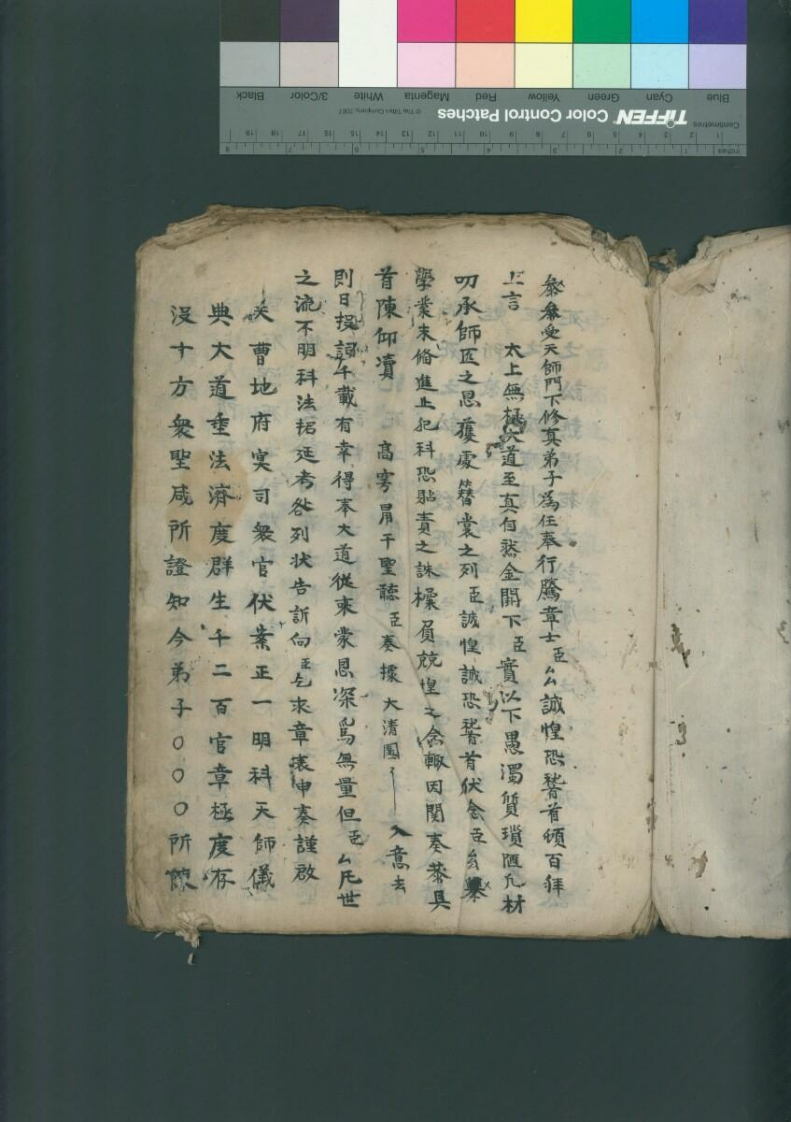 叅受天師門下修真弟子為任奉行騰章士臣厶誠惶恐稽首頓百拜
上言 太上無極大道至真自然金闕下臣實以下愚濁質瑣匪凡材
叨承師匠之恩獲處簪裳之列臣誠惶誠恐稽首伏念臣厶
學業未脩進止犯科恐貽責之誅懆負兢惶之念輙因関奏恭具
首陳仰凟 高穹冐干聖聽臣奏據 大清國 入意去
則日投詞千載有幸得奉大道從來蒙恩深爲無量但臣厶凡世
之流不明科法招延考咎列狀告訴向臣乞求章表申奏謹啟
天曹地府冥司衆官伏業正一明科天師儀
典大道垂法濟度群生千二百官章極度存
沒十方衆聖咸所證知今弟子〇〇〇所陳
TIFFEN Color Control Patches
© The Tiffen Company, 2007
Blue Cyan Green Yellow Red Magenta White 3/Color Black
Centimetres
Inches